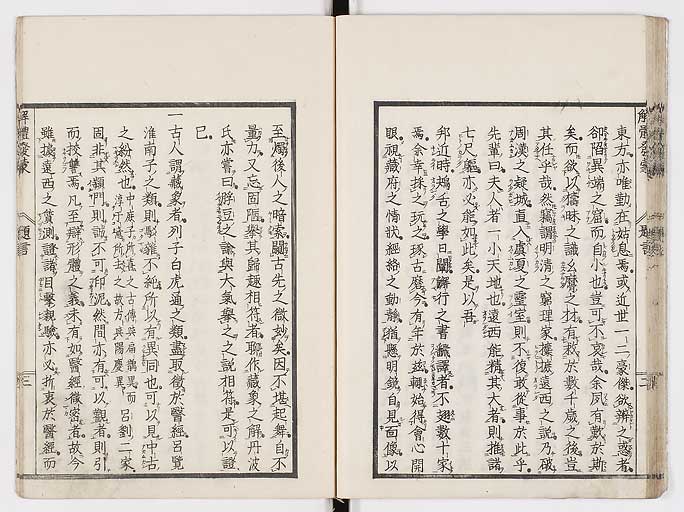 東方亦唯動在姑息焉或近世一二豪傑欲辨之惑者
却陷異端之窟而自小也豈可不哀哉余夙有歎於斯
矣而欲以儒昧之識幺麼之材有救於數千歲之後豈
其任乎哉然竊謂明清之窮理家攘遠西之說乃破
周漢之疑城直入虞夏之靈室則不復敢從事於此乎
先輩曰夫人者一小天地也遠西能精其大者則推諸
七尺軀亦必能如此矣是以吾
邦近時鴃舌之學日闡解行之書飜譯者不翅數十家
焉余幸採之玩之琢古磨今有年於玆輒始得會心開
眼視藏府之情狀經絡之動靜猶懸明鏡自見面像以
解體發蒙 題言 二
至爥後人之暗索闢古先之微妙矣因不堪起舞自不
量力又忘固陋舉其歸趣相符者聊作藏象之解丹波
氏亦嘗曰游豆之論與大氣舉之之說相符是可以證
已
一古人謂藏象者列子白虎通之類盡取徵於醫經呂覽
淮南子之類則駁雜不純所以有異同也可以見中古
之紛然也 中庶子所舉之古傳與扁鵲異而淳于城所述之故方與陽慶異 呂劉二家
固非其顓門則誠不可印泥然間亦有可以觀者則引
而挍讐焉凡至辯形體之義未有如醫經微密者故今
雖據遠西之實測證諸目擊親驗亦必折衷於醫經而
解體發蒙 題言 三